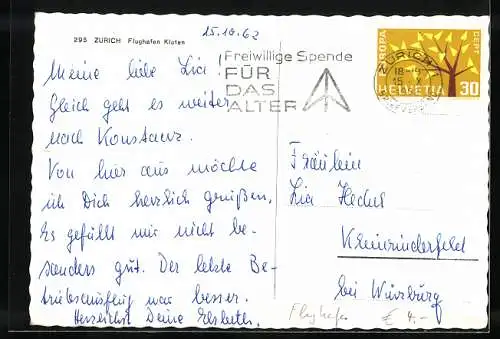 15.10.62
295 ZÜRICH Flughafen Kloten
Meine liebe Lia!
Gleich geht es weiter
nach Konstanz.
Von hier aus möchte
ich Dich herzlich grüßen.
Es gefällt mir nicht be-
sonders gut. Der letzte Be-
triebsausflug war besser.
Herzlichst Deine Elsbeth.
Freiwillige Spende
FÜR
DAS
ALTER
ZÜRICH
18-19
15. X
EUROPA
CEPT
HELVETIA 30
Fräulein
Lia
Kleinrinderfeld
bei Würzburg
Flughafen
€ 4.-